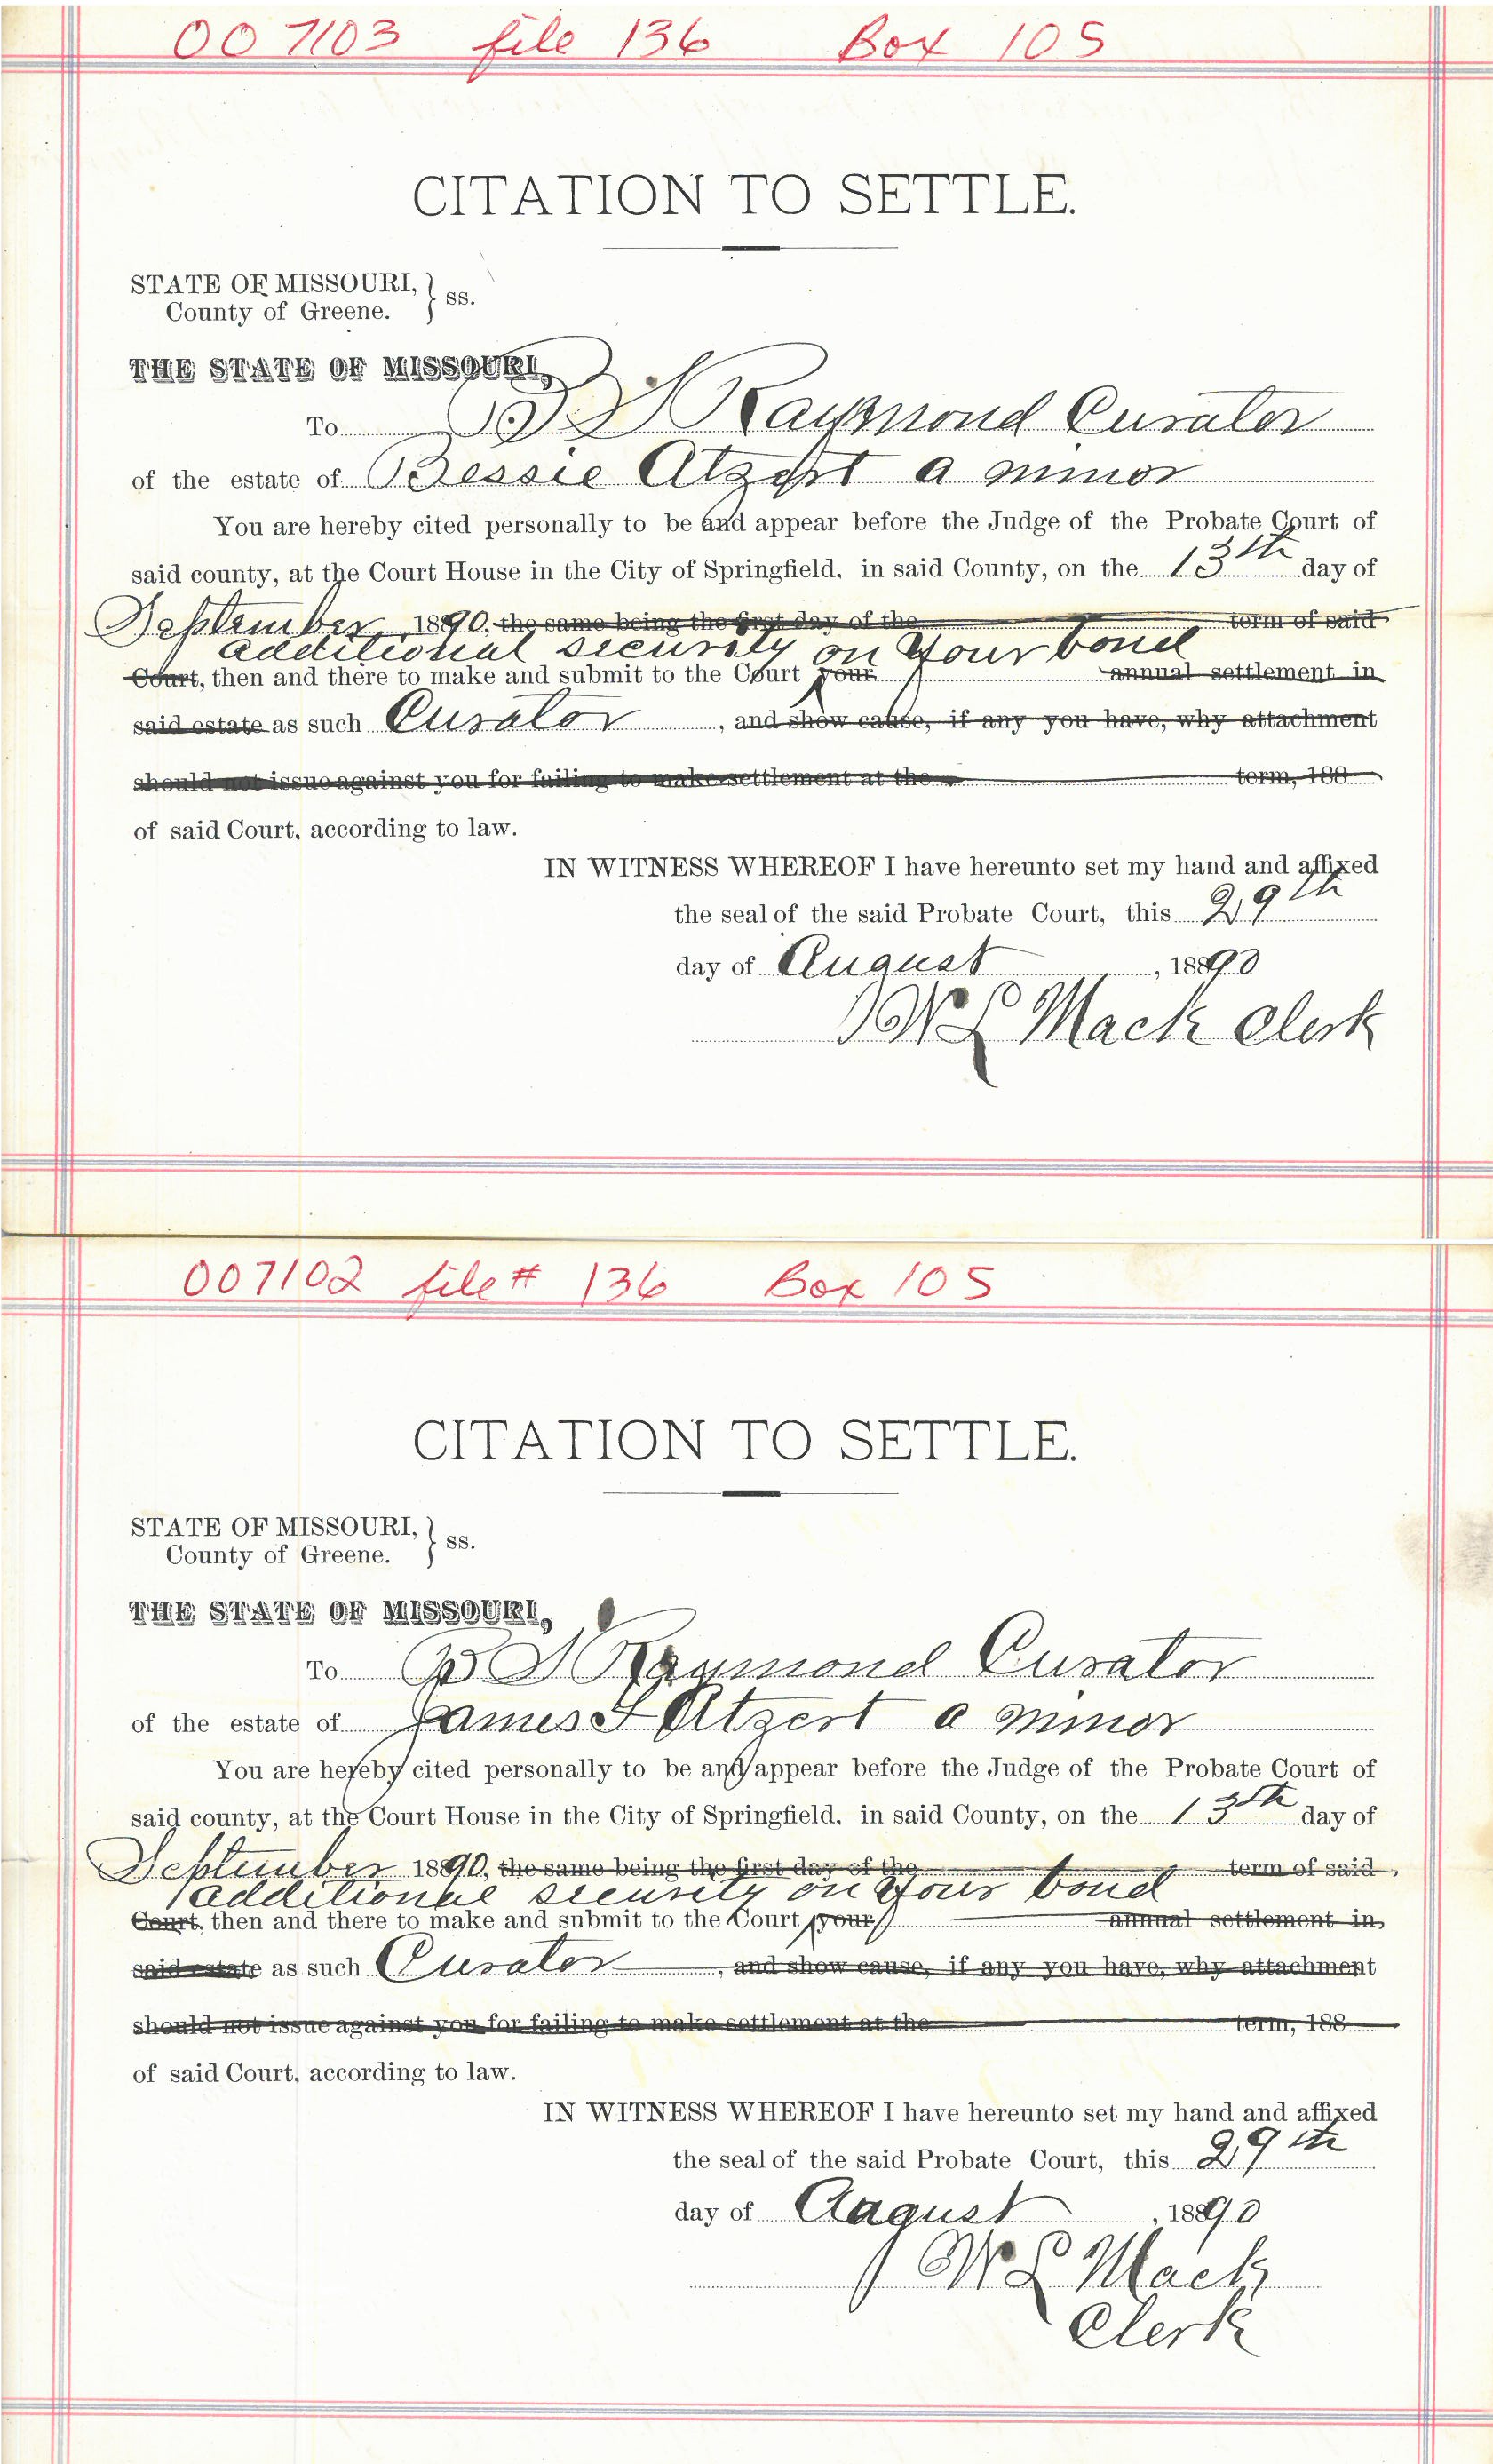 007103 file 136 Box 105
CITATION TO SETTLE.
STATE OF MISSOURI, } ss.
County of Greene.
THE STATE OF MISSOURI,
To B S Raymond Curator
of the estate of Bessie Atzert a minor
You are hereby cited personally to be and appear before the Judge of the Probate Court of
said county, at the Court House in the City of Springfield, in said County, on the 13th day of
September 1890, the same being the first day of the term of said
additional security on your bond
Court, then and there to make and submit to the Court your annual settlement in
said estate as such Curator, and show cause, if any you have, why attachment
should not issue against you for failing to make settlement at the term, 188
of said Court, according to law.
IN WITNESS WHEREOF I have hereunto set my hand and affixed
the seal of the said Probate Court, this 29th
day of August, 1890
W L Mack Clerk
007102 file # 136 Box 105
CITATION TO SETTLE.
STATE OF MISSOURI, } ss.
County of Greene.
THE STATE OF MISSOURI,
To B S Raymond Curator
of the estate of James F Atzert a minor
You are hereby cited personally to be and appear before the Judge of the Probate Court of
said county, at the Court House in the City of Springfield, in said County, on the 13th day of
September 1890, the same being the first day of the term of said
additional security on your bond
Court, then and there to make and submit to the Court your annual settlement in
said estate as such Curator, and show cause, if any you have, why attachment
should not issue against you for failing to make settlement at the term, 188
of said Court, according to law.
IN WITNESS WHEREOF I have hereunto set my hand and affixed
the seal of the said Probate Court, this 29th
day of August, 1890
W L Mack
Clerk